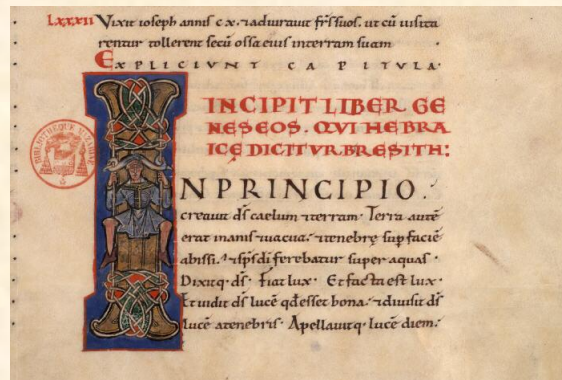 LXXXII Vixit ioseph annis c x. ⁊ adiuravit fr̄s suos. ut cū uisita
rentur tollerent secū ossa eius in terram suam
EXPLICIVNT CAPITVLA.
INCIPIT LIBER GE
NESEOS. QVI HEBRA
ICE DICITVR BRESITH:
BIBLIOTHEQUE MAZARINE
IN PRINCIPIO.
creauit dˉs caelum ⁊ terram. Terra autē
erat inanis ⁊ uacua. ⁊ tenebrę sup faciē
abissi. ⁊ sp̄s dī ferebatur super aquas.
Dixitq. dˉs. Fiat lux. Et facta est lux.
Et uidit dˉs lucē qd esset bona. ⁊ diuisit dˉs
lucē a tenebris. Apellauitq. lucē diem.